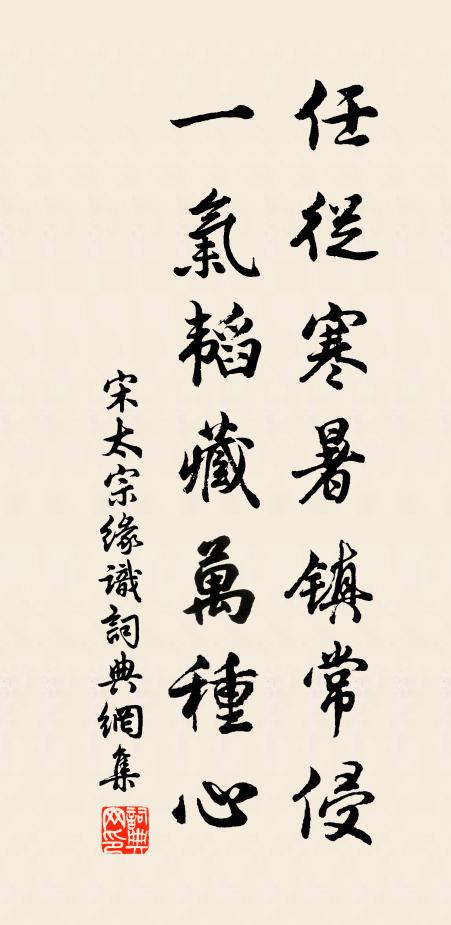 任從寒暑鎮常侵
一氣韜藏萬種心
宋太宗緣識詞典網集
詞典網印